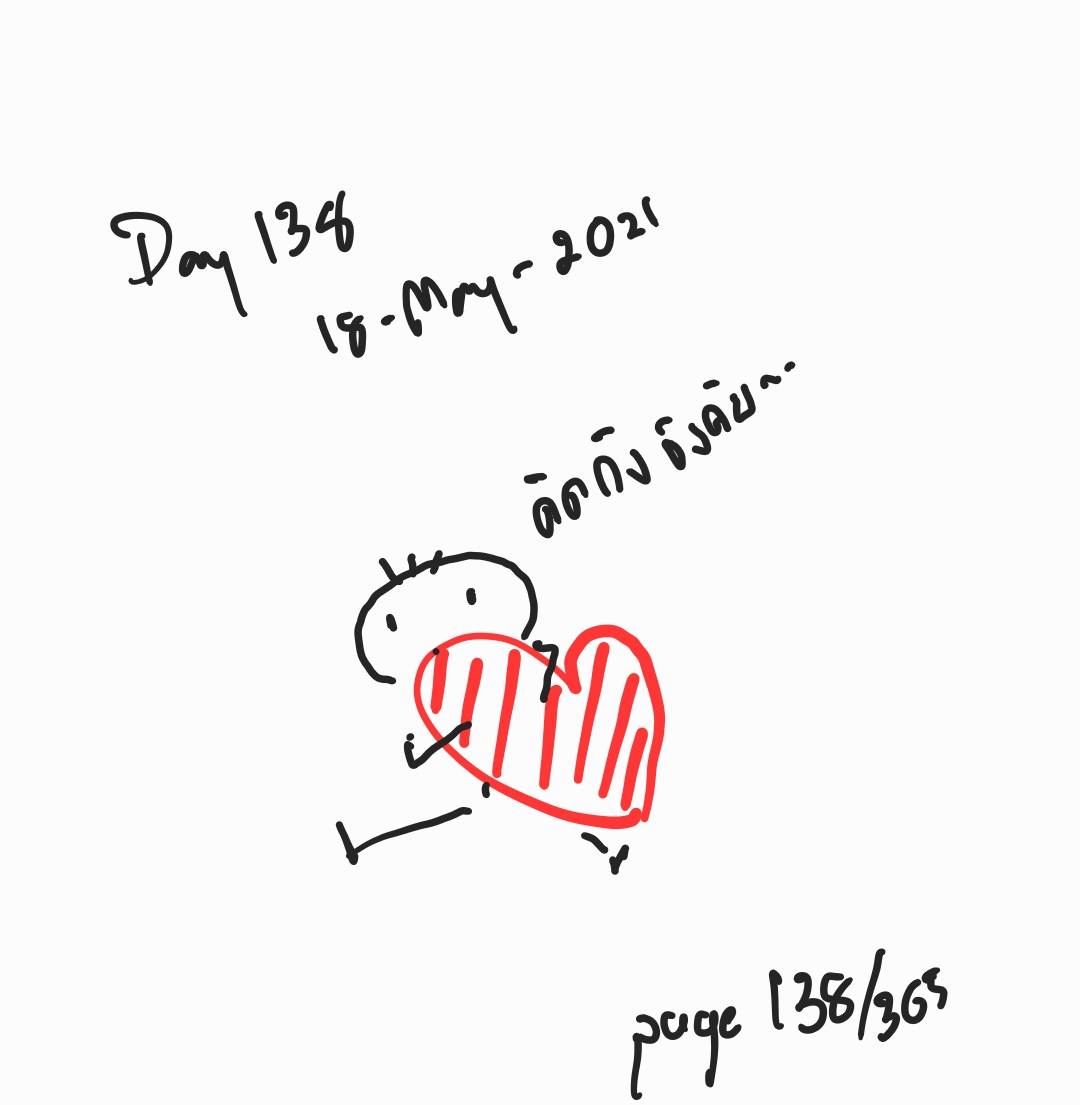 Day 138
18-May-2021
คิดถึงจังคับ~..
page 138/365